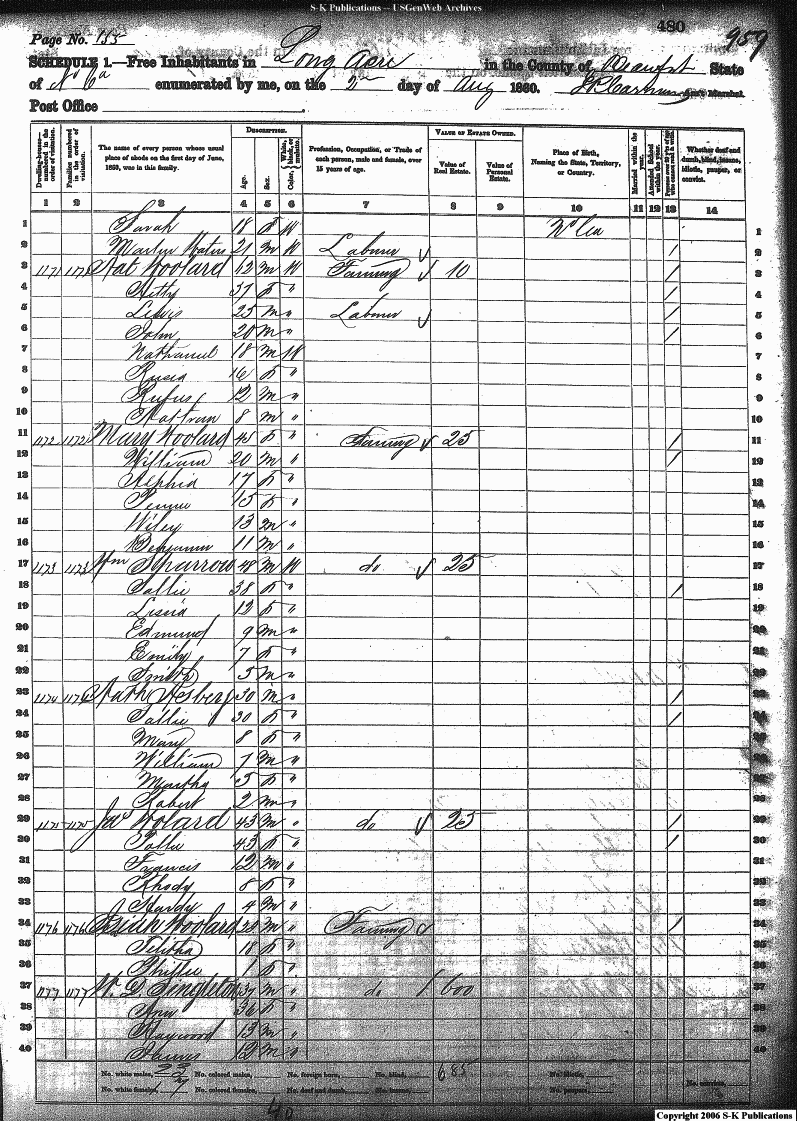 S-K Publications – USGenWeb Archives
480
Page No. 155
959
SCHEDULE 1.—Free Inhabitants in Long Acre in the County of Beaufort State
of No Ca enumerated by me, on the 2 day of Aug 1860. Ass't Marshal.
Post Office
Dwelling-houses—numbered in the order of visitation.
Families numbered in the order of visitation.
The name of every person whose usual place of abode on the first day of June, 1860, was in this family.
DESCRIPTION.
Age.
Sex.
Color, White, black, or mulatto.
Profession, Occupation, or Trade of each person, male and female, over 15 years of age.
VALUE OF ESTATE OWNED.
Value of Real Estate.
Value of Personal Estate.
Place of Birth, Naming the State, Territory, or Country.
Married within the year.
Attended School within the year.
Persons over 20 y'rs of age who cannot read & write.
Whether deaf and dumb, blind, insane, idiotic, pauper, or convict.
1 2 3 4 5 6 7 8 9 10 11 12 13 14
1 Sarah 18 f W No Ca 1
2 Martin 21 m W Laborer / 2
3 1171 1171 Nat Woolard 42 m W Farming 10 / 3
4 Kitty 37 f " / 4
5 Lewis 23 m " Laborer / 5
6 John 20 m " / 6
7 Nathaniel 18 m W 7
8 16 f " 8
9 Rufus 12 m " 9
10 8 m " 10
11 1172 1172 Mary Woolard 45 f " Farming 25 / 11
12 William 20 m " / 12
13 Alphia 17 f " 13
14 Pennie 15 f " 14
15 Wiley 13 m " 15
16 Benjamin 11 m " 16
17 1173 1173 Wm Sparrow 48 m W do 25 17
18 Sallie 38 f " / 18
19 12 f " 19
20 Edmund 9 m " 20
21 Emily 7 f " 21
22 Smith 5 m " 22
23 1174 1174 30 m " / 23
24 Sallie 30 f " / 24
25 Mary 8 f " 25
26 William 7 m " 26
27 Martha 5 f " 27
28 Robert 2 m " 28
29 1175 1175 Jas Wolard 43 m " do 25 / 29
30 Sallie 43 f " / 30
31 Francis 12 m " 31
32 Rhody 8 f " 32
33 Hardy 4 m " 33
34 1176 1176 Woolard 23 m " Farming / 34
35 Telitha 18 f " 35
36 1 f " 36
37 1177 1177 W. G. Singleton 37 m " do 600 37
38 Ann 36 f " 38
39 Haywood 13 m " 39
40 James 12 m " 40
No. white males, 23 No. colored males, No. foreign born, No. blind, 685 No. idiotic,
No. white females, 17 No. colored females, No. deaf and dumb, No. insane, No. paupers, No. convicts,
40
Copyright 2006 S-K Publications